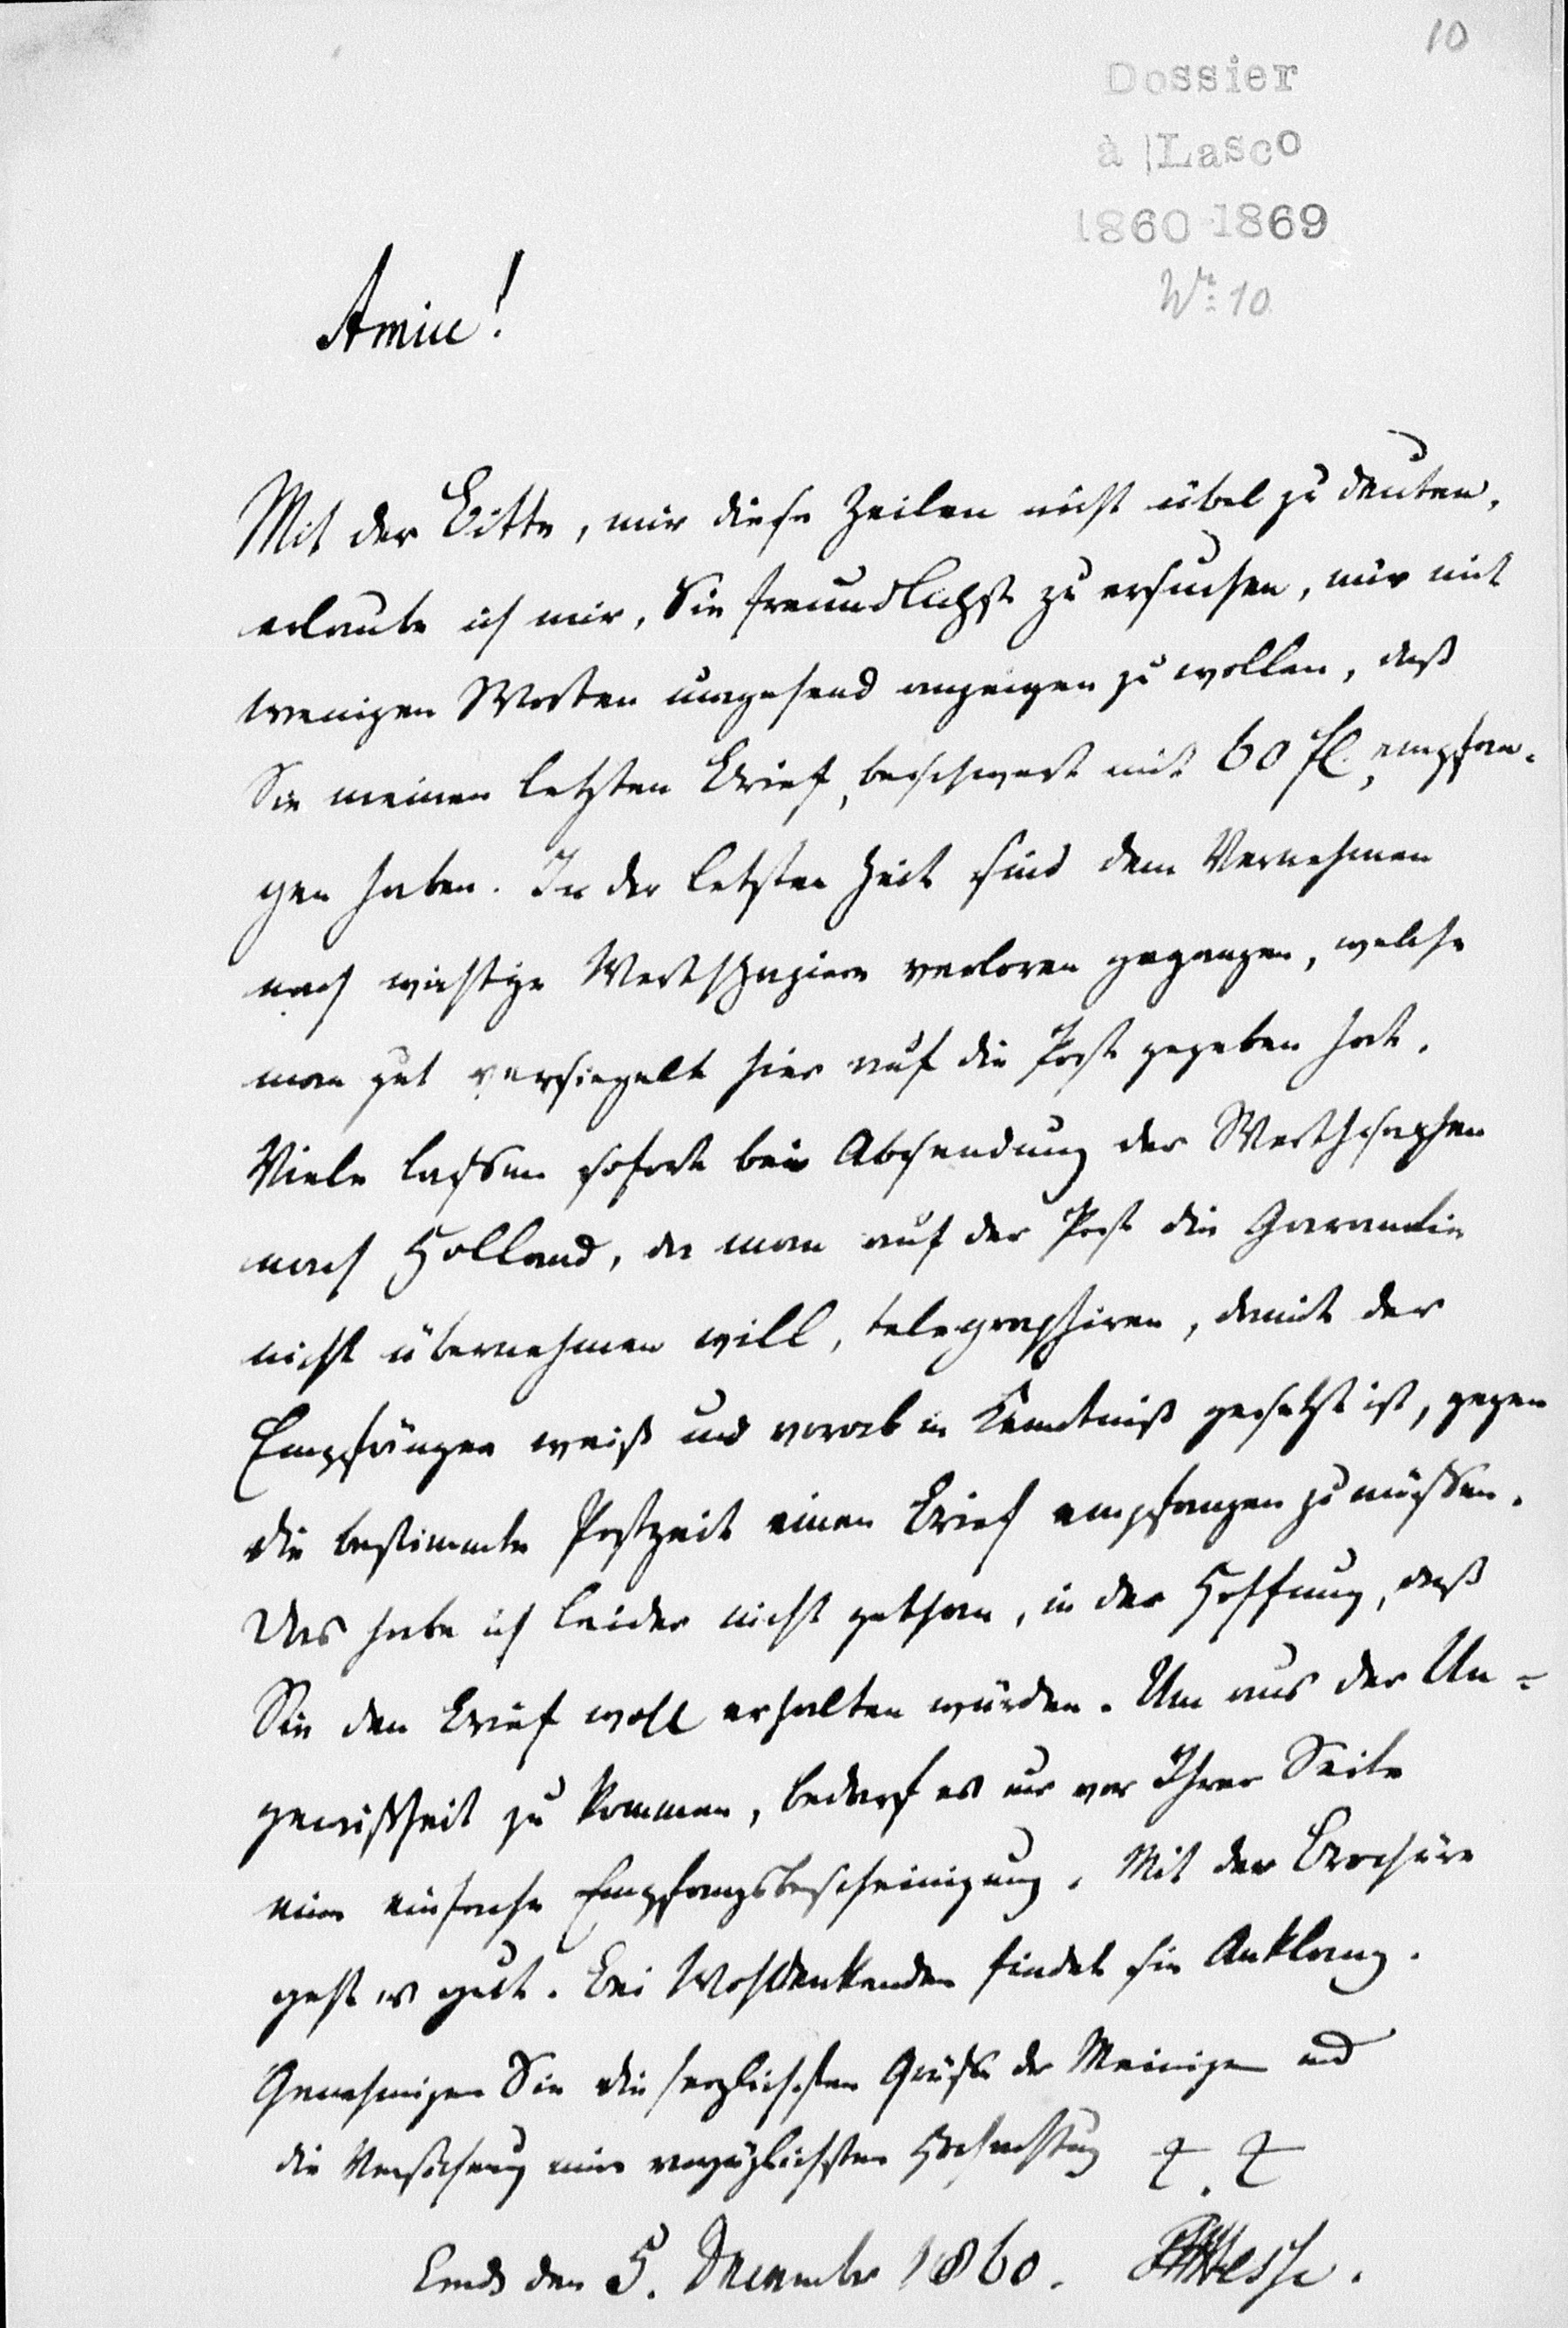 10
Dossier
à Lasco
1860 1869
No: 10
Amice!
Mit der Bitte, mir diese Zeilen nicht übel zu deuten,
erlaube ich mir, Sie freundlichst zu ersuchen, mir mit
wenigen Worten umgehend anzeigen zu wollen, daß
Sie meinen letzten Brief, beschwert mit 60 fl., empfan-
gen haben. In der letzten Zeit sind dem Vernehmen
nach wichtige Werthpapiere verloren gegangen, welche
man gut versiegelt hier auf die Post gegeben hat.
Viele lassen sofort bei Absendung der Werthsachen
nach Holland, da man auf der Post die Garantie
nicht übernehmen will, telegraphiren, damit der
Empfänger weiß und vorab in Kenntniß gesetzt ist, gegen
die bestimmte Postzeit einen Brief empfangen zu müssen.
Das habe ich leider nicht gethan, in der Hoffnung, daß
Sie den Brief wohl erhalten würden. Um aus der Un-
gewißheit zu kommen, bedarf es nur von Ihrer Seite
eine einfache Empfangsbescheinigung. Mit der Brochüre
geht es gut. Bei Wohldenkenden findet sie Anklang.
Genehmigen Sie die herzlichsten Grüße der Meinigen und
die Versicherung meiner vorzüglichsten Hochachtung
Emds den 5. December 1860. Hesse.